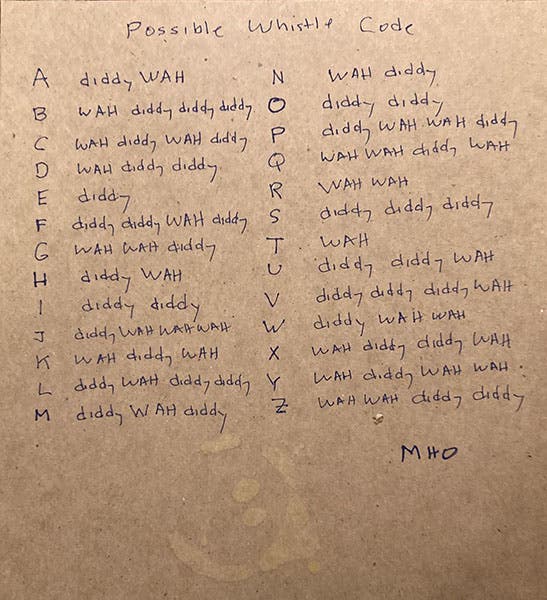 Possible Whistle Code
A diddy WAH
B WAH diddy diddy diddy
C WAH diddy WAH diddy
D WAH diddy diddy
E diddy
F diddy diddy WAH diddy
G WAH WAH diddy
H diddy WAH
I diddy diddy
J diddy WAH WAH WAH
K WAH diddy WAH
L diddy WAH diddy diddy
M diddy WAH diddy
N WAH diddy
O diddy diddy
P diddy WAH WAH diddy
Q WAH WAH diddy WAH
R WAH WAH
S diddy diddy diddy
T WAH
U diddy diddy WAH
V diddy diddy diddy WAH
W diddy WAH WAH
X WAH diddy diddy WAH
Y WAH diddy WAH WAH
Z WAH WAH diddy diddy
MHO